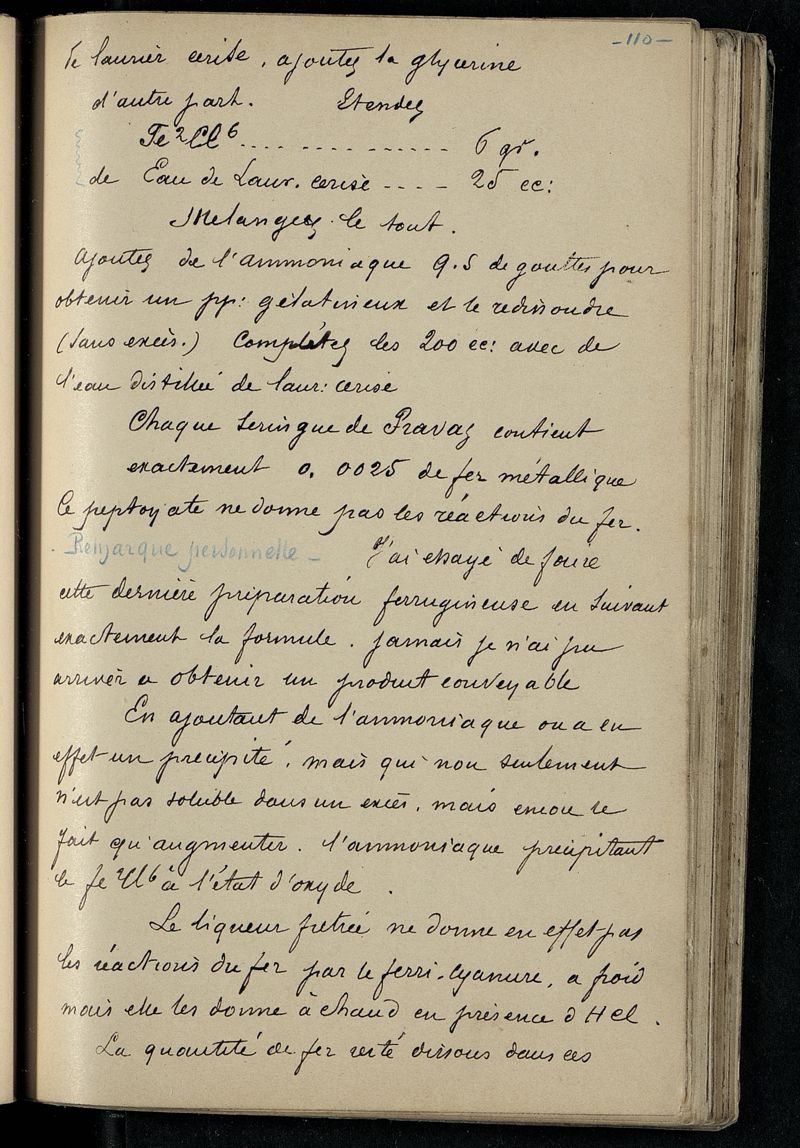 -110-
de laurier cerise, ajoutez la glycerine
d'autre part. Etendez
Fe²Cl⁶ .... 6 gr.
de Eau de Laur. cerise ---- 25 cc:
Melangez le tout.
Ajoutez de l'ammoniaque Q.S de gouttes pour
obtenir un pp: gélatineux et le redissoudre
(sans excès.) Complétez les 200 cc: avec de
l'eau distillée de laur: cerise
Chaque seringue de Pravaz contient
exactement 0,0025 de fer métallique
Ce peptonate ne donne pas les réactions du fer.
Remarque personnelle - J'ai essayé de faire
cette dernière préparation ferrugineuse en suivant
exactement la formule. jamais je n'ai pu
arriver a obtenir un produit convenable
En ajoutant de l'ammoniaque on a en
effet un precipité, mais qui non seulement
n'est pas soluble dans un excès, mais encore ne
fait qu'augmenter. l'ammoniaque precipitant
le fe²Cl⁶ à l'état d'oxyde.
La liqueur filtrée ne donne en effet pas
les réactions du fer par le ferri-cyanure, a froid
mais elle les donne à chaud en présence d HCl.
La quantité de fer resté dissous dans ces